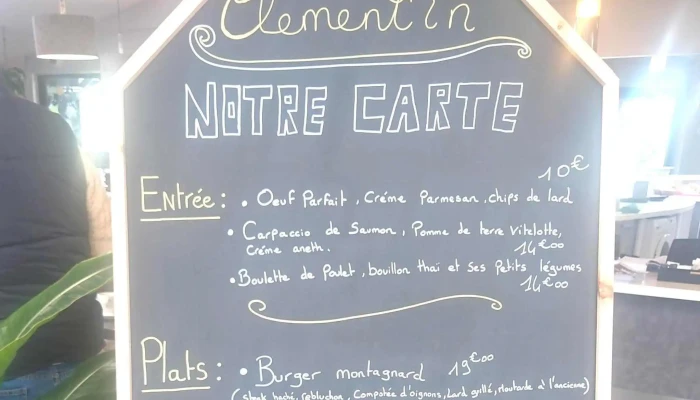 Clement'in
NOTRE CARTE
10€
Entrée : • Oeuf Parfait, Créme Parmesan, chips de lard
• Carpaccio de Saumon, Pomme de terre Vitelotte,
Créme aneth. 14€00
• Boulette de Poulet, bouillon thaï et ses Petits légumes
14€00
Plats : • Burger montagnard 19€00
(Steak haché, reblochon, Compotée d'oignons, Lard grillé, Moutarde à l'ancienne)